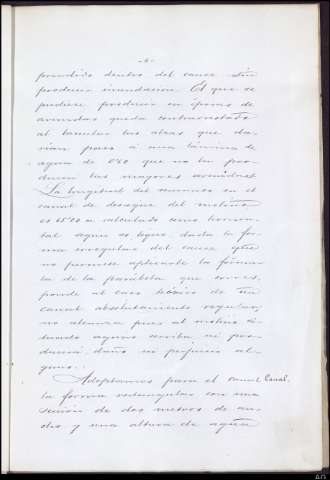 -6-
prendido dentro del cauce sin
producir inundacion. El que se
pudiese producir en épocas de
avenidas queda contrarrestado
al levantar las alzas que da-
rian paso á una lámina de
agua de 0'80 que no la pro-
ducen las mayores avenidas.
La longitud del remanso en el
canal de desagüe del molino
es 65'00 m calculado como horizon-
tal segun es lógico dada la for-
ma irregular del cauce que
no permite aplicarle la fórmu-
la de la parábola que corres-
ponde al caso teórico de un
canal absolutamente regular,
no alcanza pues al molino si-
tuado aguas arriba ni pro-
ducirá daño ni perjuicio al-
guno.
Adoptamos para el canal Canal.
la forma rectangular con una
seccion de dos metros de an-
cho y una altura de agua